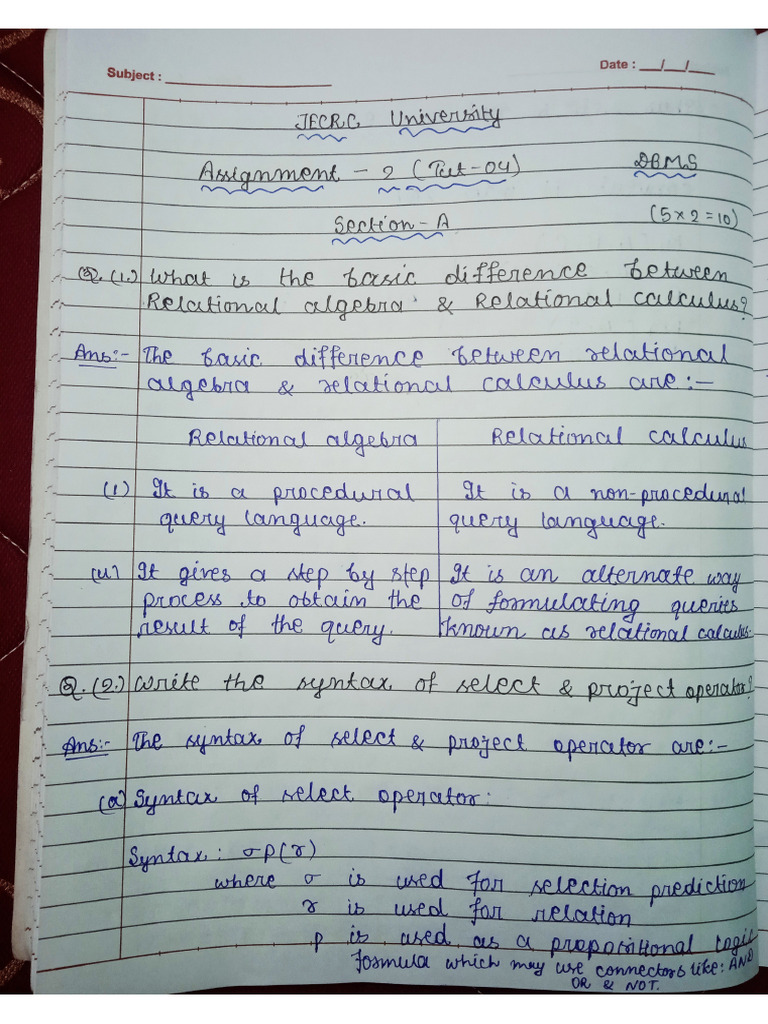 Subject :
Date : __/__/__
JECRC University
Assignment - 2 (Tut-04) DBMS
Section - A (5 x 2 = 10)
Q.(1.) What is the basic difference between
Relational algebra & Relational calculus?
Ans:- The basic difference between relational
algebra & relational calculus are :-
Relational algebra Relational calculus
(i) It is a procedural It is a non-procedural
query language. query language.
(ii) It gives a step by step It is an alternate way
process to obtain the of formulating queries
result of the query. known as relational calculus.
Q.(2.) Write the syntax of select & project operator?
Ans:- The syntax of select & project operator are:-
(a) Syntax of select operator:
Syntax : σp(r)
where σ is used for selection prediction
r is used for relation
p is used as a propositional logic
formula which may use connectors like: AND
OR & NOT.